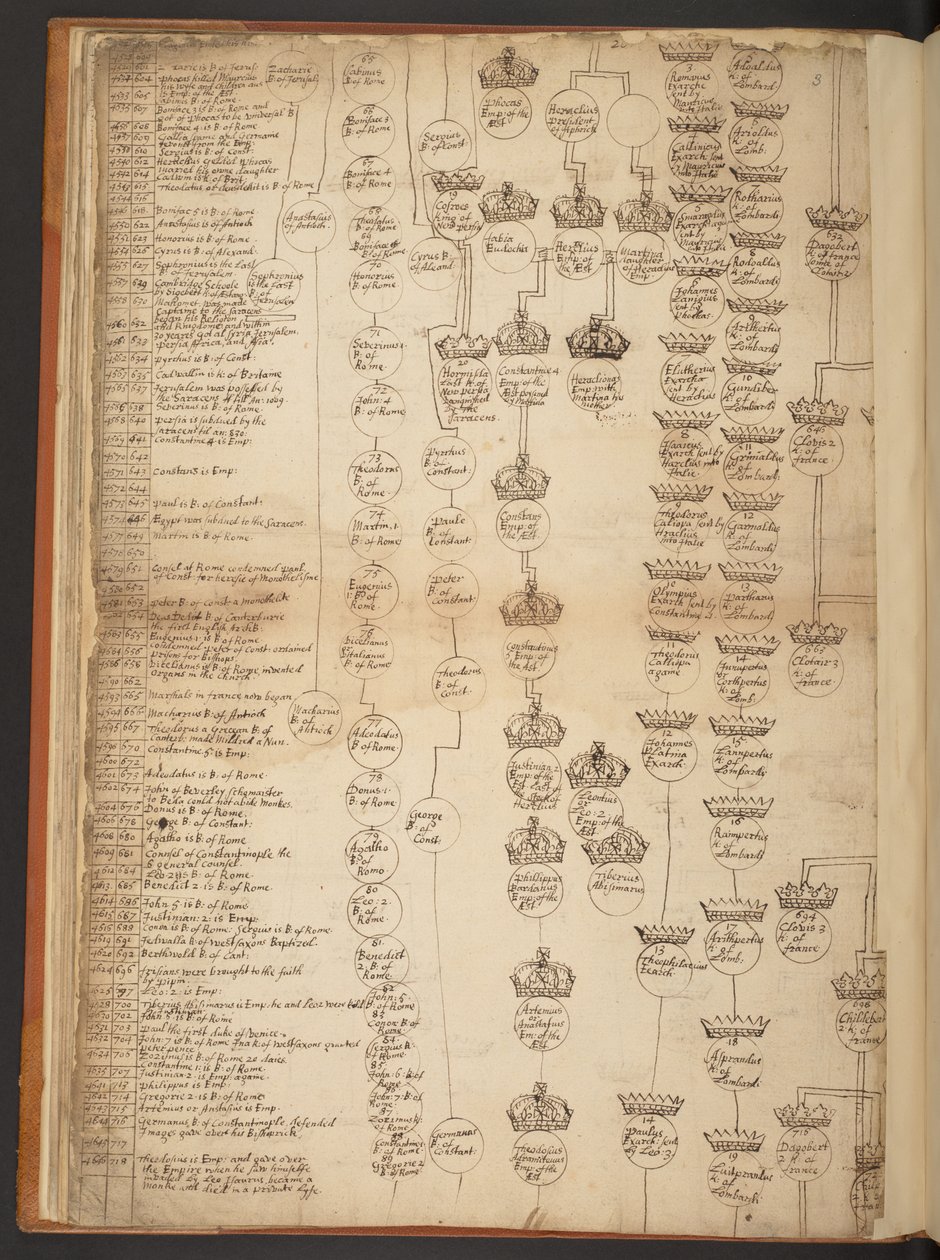 4529 601 Zacarie is B of Jerus:
4532 604 phocas killed Mauricius
his wife and children and
is Emp: of the Æst.
4533 605 Sabinus B: of Rome.
4535 607 Boniface 3 is B: of Rome and
got of phocas to be universal B
4536 608 Boniface 4: is B: of Rome
4537 609
4538 610 Sergius is B: of Const:
4540 612 Heraclius killed phocas
4542 614 maried his owne daughter
Cadwin is K: of Brit:
4543 615 Theodatus or deusdedit is B: of Rome
4544 616
4546 618 Boniface 5 is B: of Rome.
4550 622 Anastasius is B of Antioch
4551 623 Honorius is B: of Rome.
4554 626 Cyrus is B: of Alexand.
4555 627 Sophronius is the Last
B: of Jerusalem.
4557 629 Cambridge Schoole
4558 630 Mahomet was made
Captaine to the Saracens
began his Religion
4560 632 and Kingdome and within
30 yeares got al Syria Jerusalem,
4561 633 persia Africa, and Asia.
4562 634 pyrrhus is B: of Const:
4563 635 Cadwallin is K: of Britame
4565 637 Jerusalem was possesed by
the Saracens till An: 1099.
4566 638 Severinus is B: of Rome.
4568 640 persia is subdued by the
Saracens til an: 830:
4569 641 Constantine 4 is Emp:
4570 642
4571 643 Constans is Emp:
4572 644
4573 645 paul is B: of Constant:
4574 646 Egypt was subdued to the Saracens.
4577 649 Martin is B: of Rome.
4578 650
4579 651 Consel at Rome condemned paul
of Const: for heresie of Monothelisme
4580 652
4581 653 peter B: of const: a monothelit.
654 Deus Dedit B: of Canterburie
the first English ArchB:
4583 655 Eugenius 1: is B: of Rome
4584 656 condemned peter of Const: ordained
prisons for Bishops.
4586 658 Vitelianus is B: of Rome, invented
organs in the Church.
4590 662
4593 665 Marshals in france now began
4594 666 Macharius B: of Antioch
4595 667 Theodorus a Grecean B: of
Canterb: made Mildred a Nun.
4598 670 Constantine 5: is Emp:
4600 672
4601 673 Adeodatus is B: of Rome.
4602 674 John of Beverley scholmaister
to Beda could not abide Monkes.
4604 676 Donus is B: of Rome.
4606 678 George B: of Constant:
4608 680 Agatho is B: of Rome
4609 681 Counsel of Constantinople the
6 general counsel.
4612 684 Leo 2 is B: of Rome.
4613 685 Benedict 2: is B: of Rome.
4614 686 John 5 is B: of Rome
4615 687 Justinian: 2: is Emp:
4616 688 Conon is B: of Rome: Sergius is B: of Rome:
4619 691 Tedwalla K: of Westsaxons Baptized.
4620 692 Berthwold B: of Cant:
4624 696 frisans were brought to the faith
by pipin.
4625 697 Leo: 2: is Emp:
4628 700 Tiberius Absimarus is Emp: he and Leo 2 were
by Justinian
4630 702 John: 5: is B: of Rome
4631 703 paul the first duke of Venice.
4632 704 John: 7 is B: of Rome Ina K: of Westsaxons granted
peter pence
4634 706 Zozimus is B: of Rome 20 daies
Constantine 1: is B: of Rome.
4635 707 Justinian 2: is Emp: agame.
4641 713 philippus is Emp:
4642 714 Gregorie 2: is B: of Rome
4643 715 Artemius or Anstasius is Emp:
4644 716 Germanus B: of Constantinople, defended
Images gave over his Bishoprick
4645 717
4646 718 Theodosius is Emp: and gave over
the Empire when he saw himselfe
invaded by Leo Isaurus became a
Monke and died in a private lyfe.
Zacharie
B: of Jerusal:
Anastasius
of Antioch.
Sophronius
is the Last
B: of
Jerusalem
Macharius
B: of
Antioch
65
Sabinus
B: of Rome
66
Boniface 3
B: of Rome
67
Boniface 4
B: of Rome
68
Theodatus
B: of Rome
69
Boniface 5
B: of Rome
70
Honorius
B: of Rome.
71
Severinus 1.
B: of
Rome.
72
John: 4
B: of Rome.
73
Theodorus
B: of
Rome.
74
Martin. 1.
B: of Rome
75
Eugenius
1: B: of
Rome.
76
Vicelianus
or
Vitalianus
B: of Rome
77
Adeodatus
B: of Rome.
78
Donus: 1.
B: of Rome:
79
Agatho
B: of
Rome
80
Leo: 2.
B: of
Rome.
81.
Benedict
2: B: of
Rome.
82
John: 5
B: of Rome.
83
Conon B: of
Rome.
84
Sergius B:
of Rome.
85
John: 6 B: of
Rome
86
John: 7: B: of
Rome.
87
Zozimus B:
of Rome
88
Constantine 1
B: of Rome.
89
Gregorie 2
B: of Rome.
Sergius
B: of Const:
19
Cosroes
king of
New persia
Cyrus B:
of Alexand.
20
Hormisda
Last K: of
New persia
vanquished
by the
Saracens.
Pyrrhus
B: of
Constant:
Paule
B: of
Constant:
Peter
B: of
Constant:
Theodorus
B: of
Const:
George
B: of
Const:
Germanus
B: of
Constant:
Phocas
Emp: of the
Æst
Heraclius
president
of Aphrick
fabia
Eudochia
Heraclius
Emp: of
the Æst
Martina
daughter
of Heraclius
Emp:
Constantine 4
Emp: of the
Æst poysned
by Martina
Heraclionas
Emp: with
Martina his
mother
Constans
Emp: of
the Æst.
Constantinus
5 Emp: of
the Æst
Justinian 2
Emp: of the
Æst Last of
the stock of
Heraclius
Leontius
or
Leo: 2
Emp: of the
Æst.
Philippus
Bardanus
Emp: of the
Æst
Tiberius
Absimarus
Artemius
or
Anastasius
Em: of the
Æst
Theodosius
Adramiteuus
Emp: of the
Æst
3
Romanus
Exarche
sent by
Mauricius
into Italie
Callinicus
Exarch sent
by Mauricius
into Italie
5
Smaragdus
Exarch again
sent by
Mauricius
into Italie
6
Johannes
Lanigius
sent by
Phocas.
7
Elutherius
Exarcha
sent by
Heraclius
8
Isaacius
Exarch sent by
Harclius into
Italie.
9
Theodorus
Caliopa sent by
Hraclius
into Italie
10
Olympius
Exarch sent by
Constantine 4.
11
Theodorus
Calliopa
agame
12
Johannes
Platina
Exarch.
13
Theophilactus
Exarch.
14
Paulus
Exarch: sent
by Leo: 3
Adoaldus
K: of
Lombard:
6
Arioldus
K: of
Lomb:
7
Rotharius
K: of
Lombardy
8
Rodoaldus
K: of
Lombardi
9
Arithertus
K: of
Lombardy
10
Gundiber
K: of
Lombardy
11
Grimaldus
K: of
Lombardy
12
Garmoldus
K: of
Lombardy
13
Partharus
K: of
Lombard
14
Cunipertus
or
Corthpertus
K: of
Lomb:
15
Lampertus
K: of
Lombardy
16
Rampertus
K: of
Lombardy
17
Arithpertus
K: of
Lomb:
18
Asprandus
K: of
Lombardi
19
Luitprandus
K: of
Lombardi
3
632
Dagobert
K: of france
sonne of
Clotair 2
646
Clovis 2
K: of
france.
663
Clotair 3
K: of
france.
694
Clovis 3
K: of
france
698
Childebert
2: K: of
france
716
Dagobert
2: K: of
france